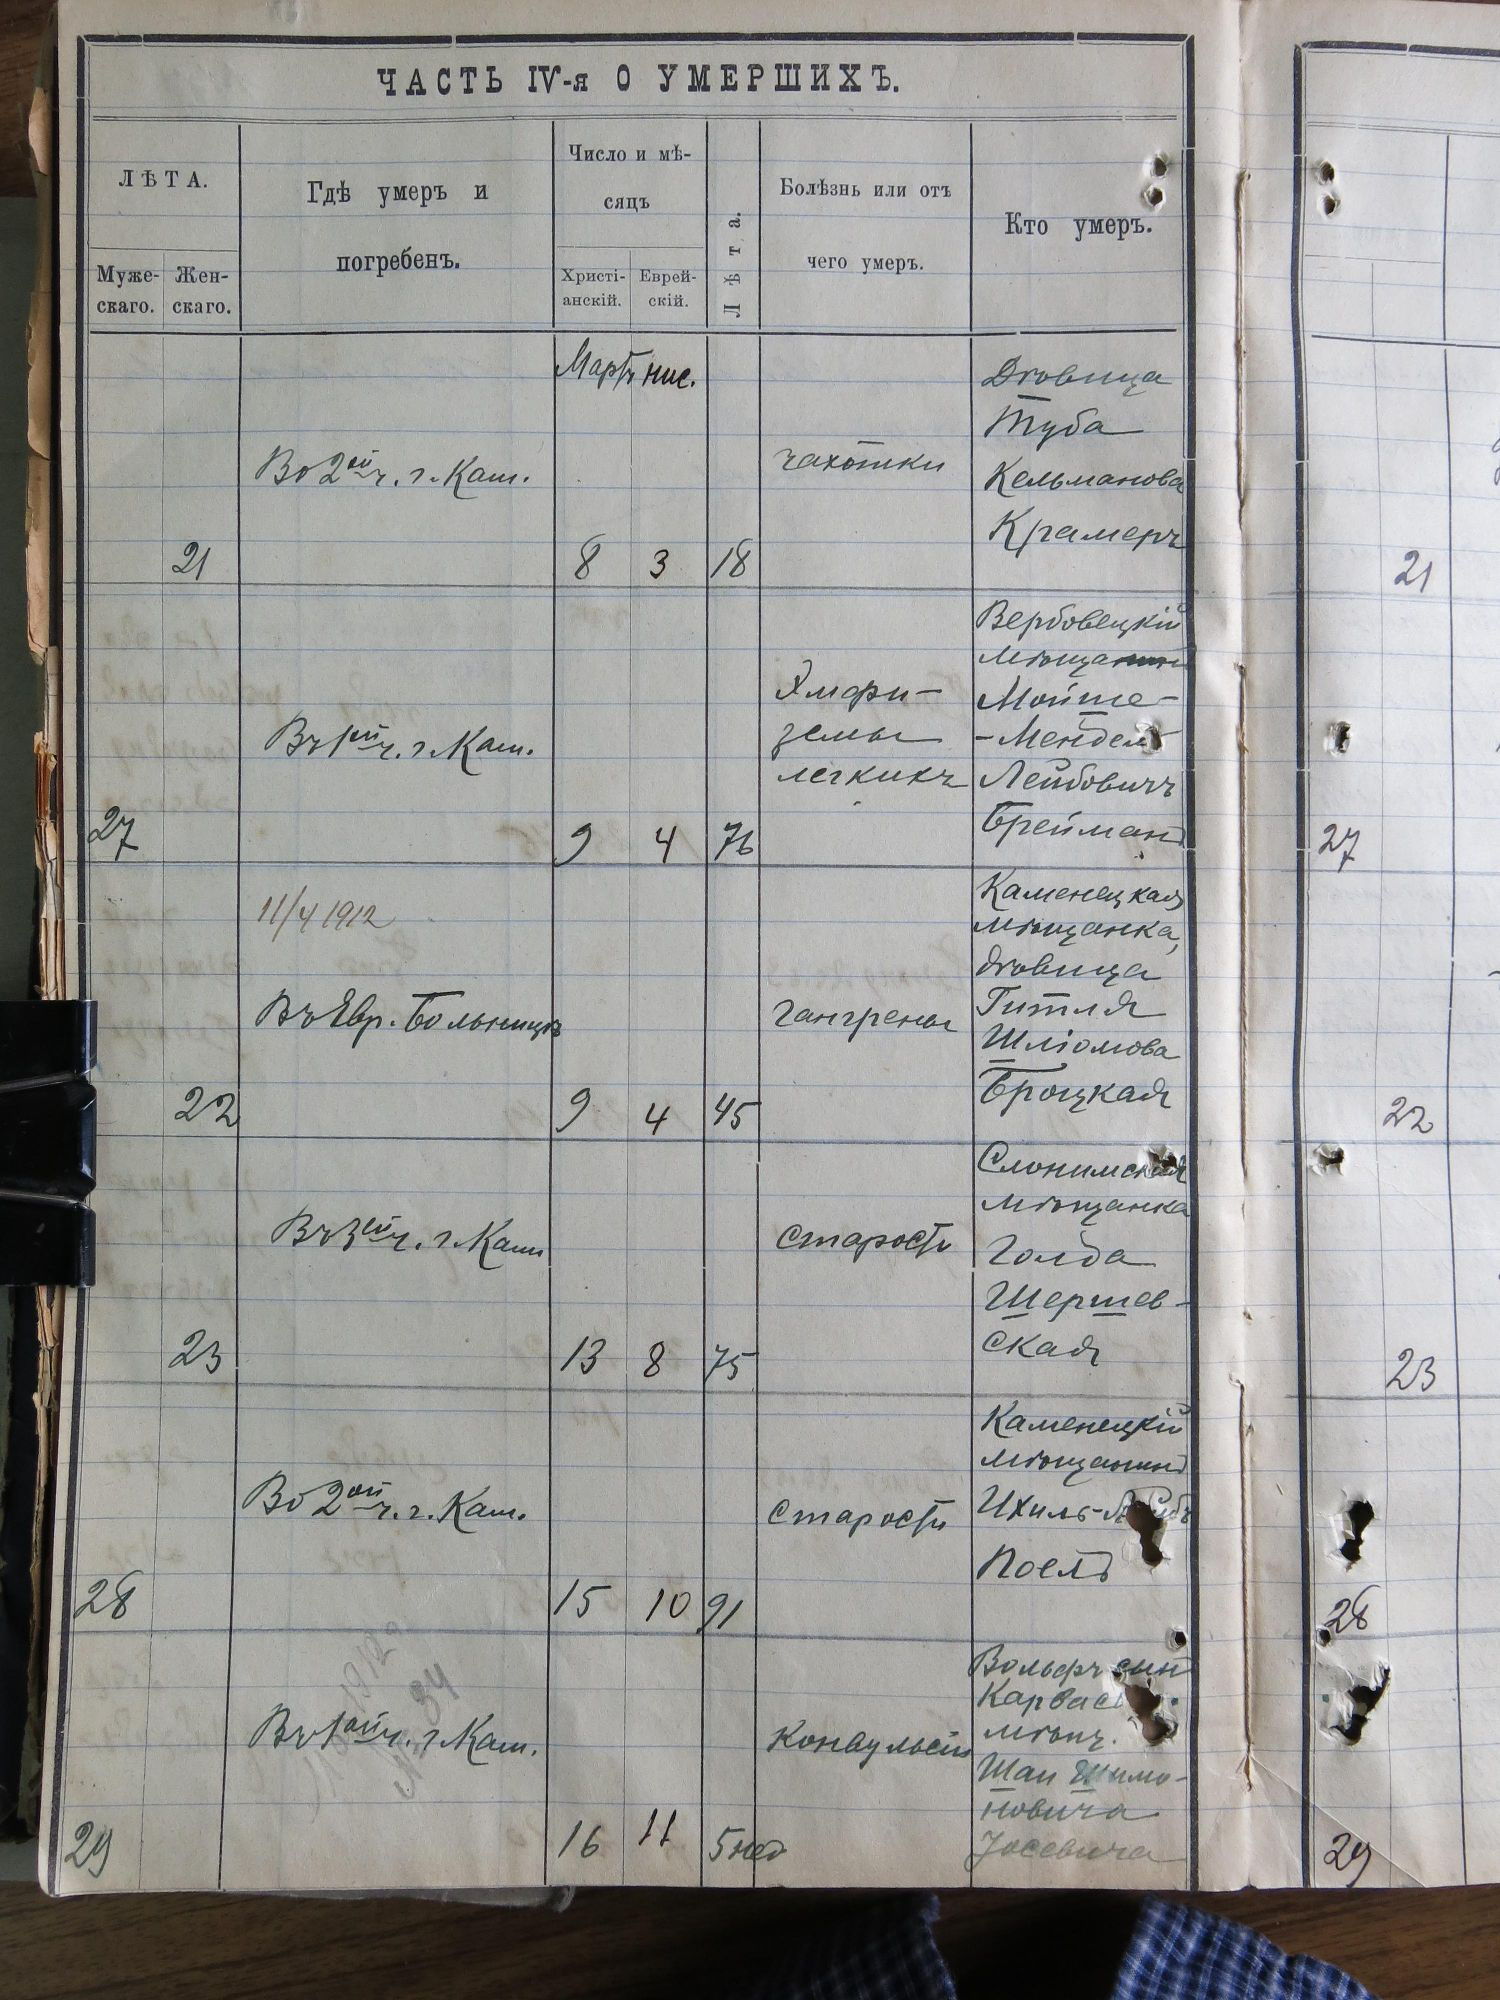 ЧАСТЬ IV-я О УМЕРШИХЪ.
ЛѢТА.
Муже-
скаго.
Жен-
скаго.
Гдѣ умеръ и
погребенъ.
Число и мѣ-
сяцъ
Христі-
анскій.
Еврей-
скій.
Лѣта.
Болѣзнь или отъ
чего умеръ.
Кто умеръ.
Мартъ нис.
21
Во 2ой ч. г. Кам.
8 3 18
чахотки
Дѣвица
Туба
Кельманова
Крамеръ
21
27
Въ 1ой ч. г. Кам.
9 4 76
Эмфи-
земы
легкихъ
Вербовецкій
мѣщанинъ
Мойше-
-Мендель
Лейбовичъ
Брейманъ
27
11/4 1912
22
Въ Евр. Больницѣ
9 4 45
гангрены
Каменецкая
мѣщанка,
дѣвица
Гитля
Шліомова
Броцкая
22
23
Въ 3ей ч. г. Кам
13 8 75
старость
Слонимская
мѣщанка
Голда
Шершев-
ская
23
28
Во 2ой ч. г. Кам.
15 10 91
старость
Каменецкій
мѣщанинъ
Ихиль-
Поелъ
28
1912
№ 34
29
Въ 1ой ч. г. Кам.
16 11 5 нед
Конвульсіи
Вольфъ сынъ
мѣщ.
Шаи Шимо-
новича
Іосевича
29